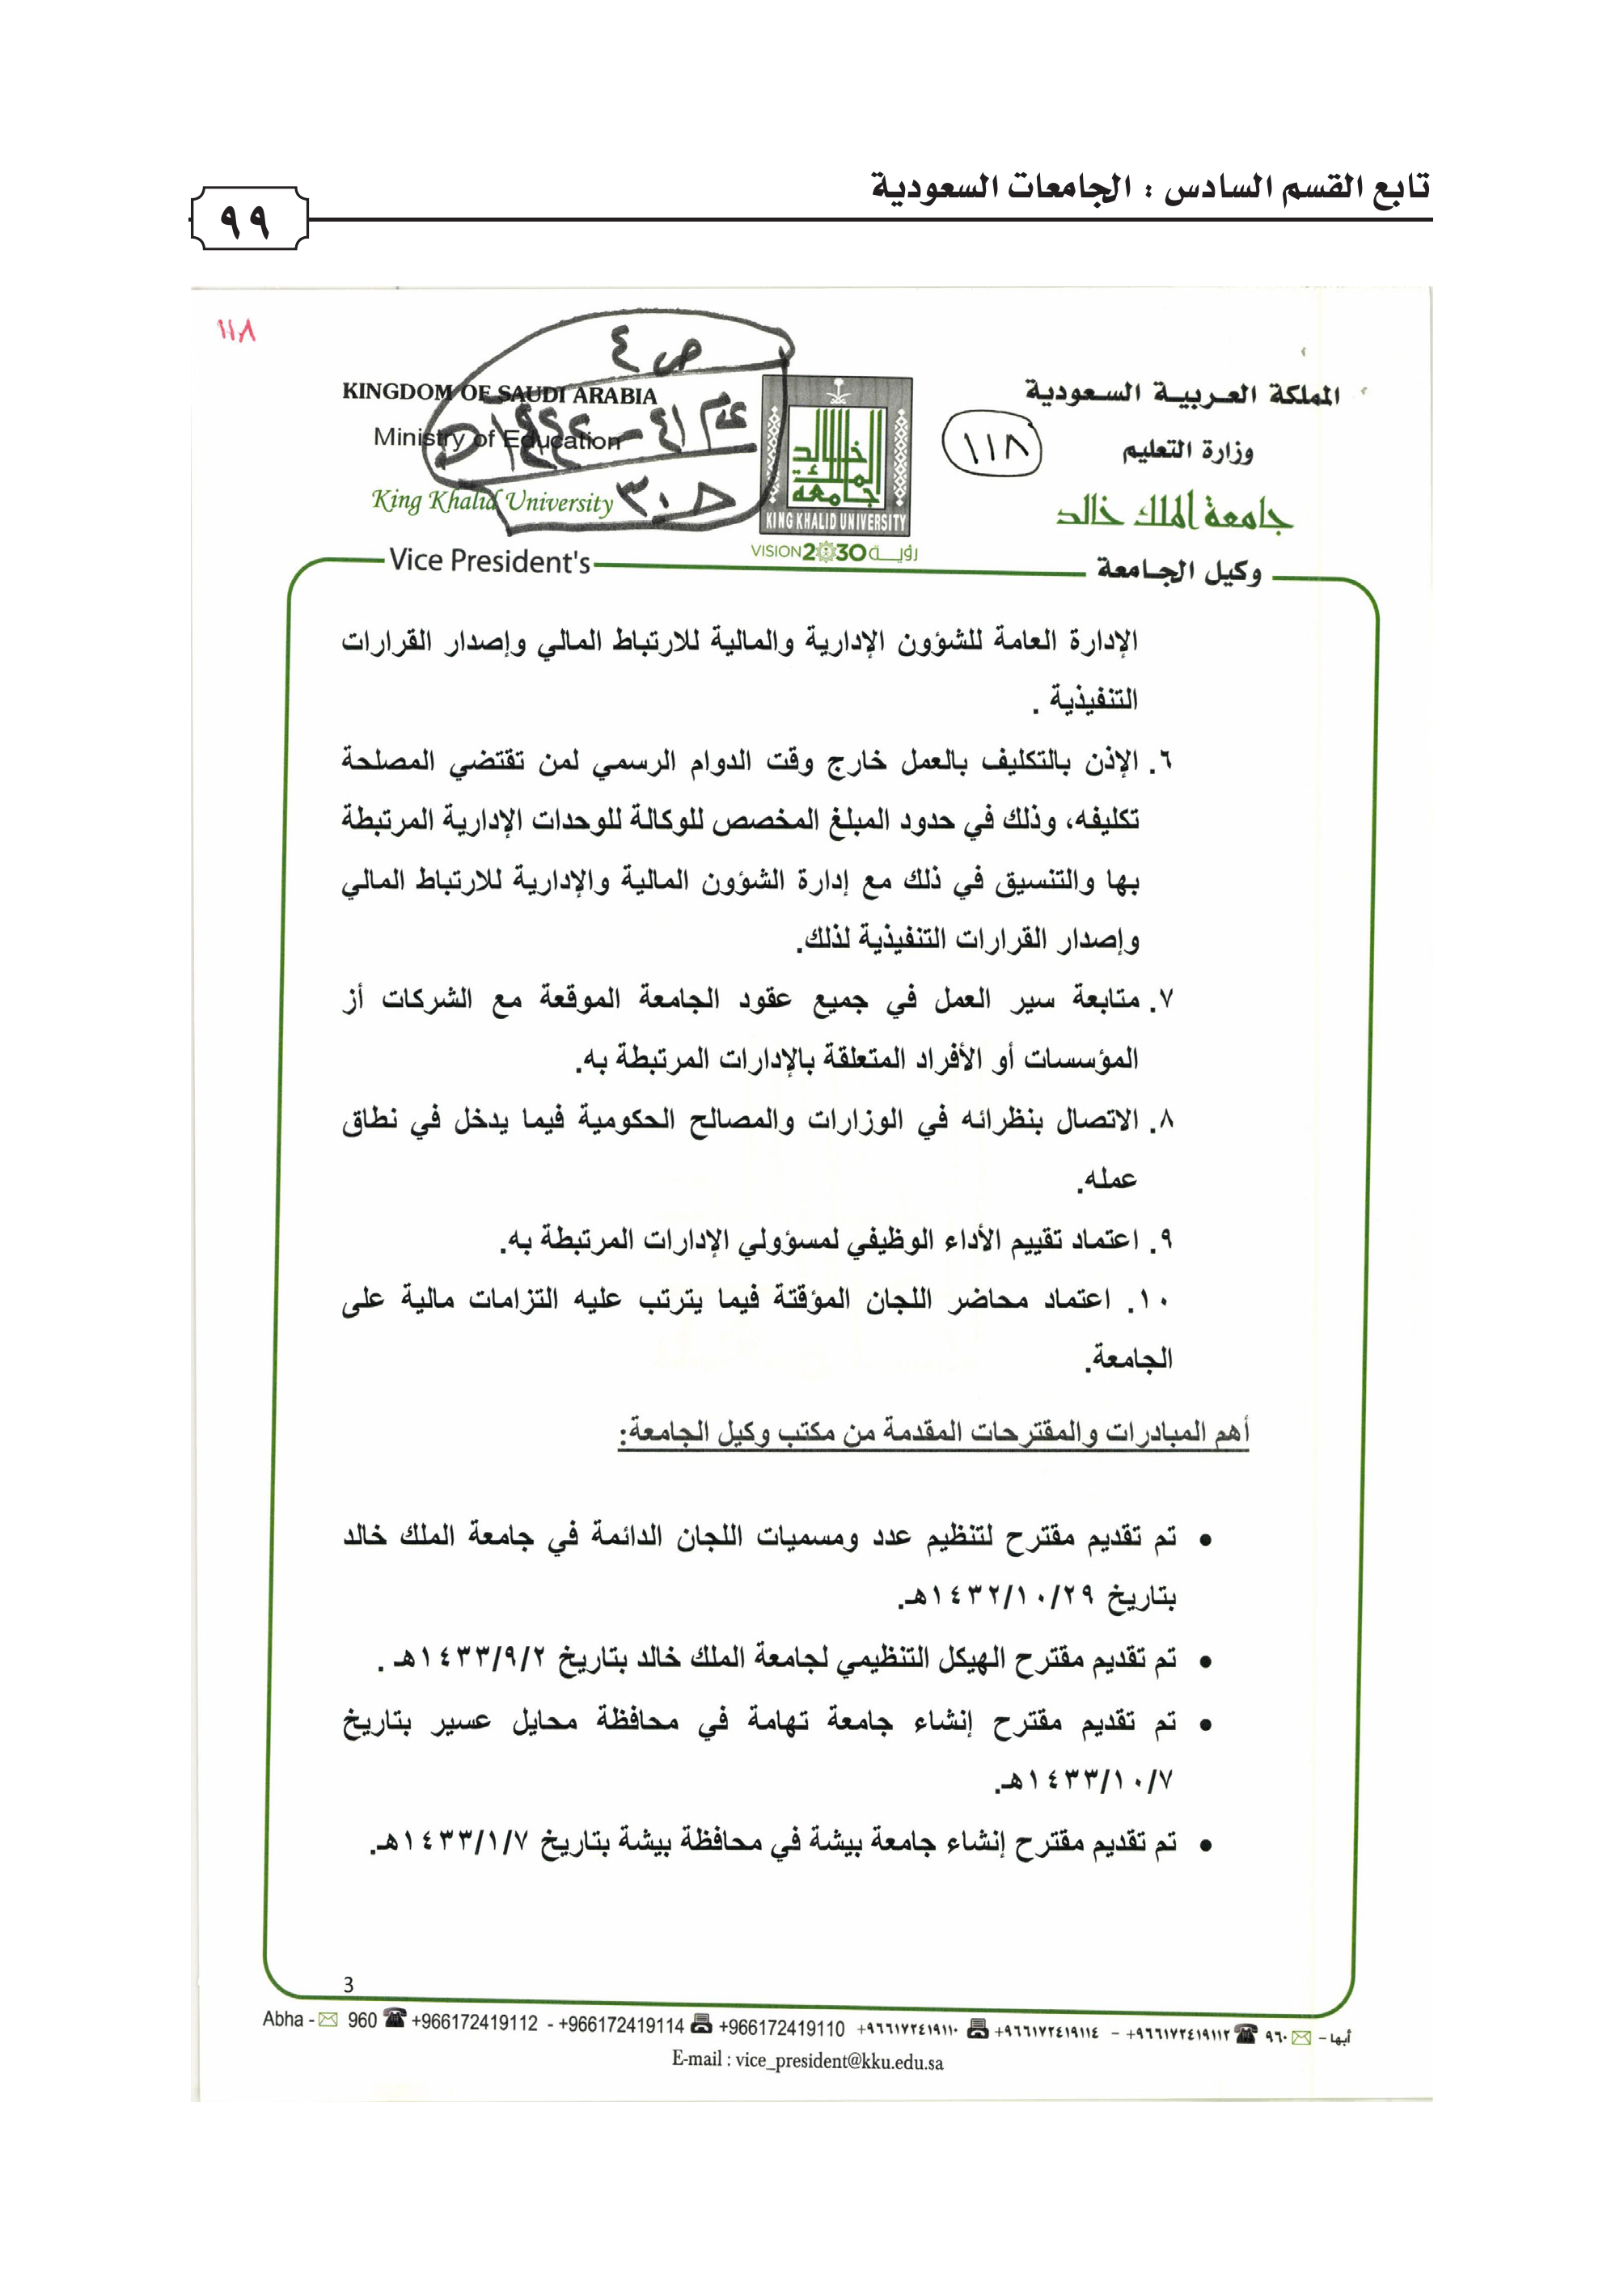 تابع القسم السادس : الجامعات السعودية
٩٩
١١٨
ص ٤
١٤٤٢هـ
KINGDOM OF SAUDI ARABIA
Ministry of Education
King Khalid University
Vice President's
KING KHALID UNIVERSITY
VISION 2030 رؤيـــة
١١٨
المملكة العربيــة السـعودية
وزارة التعليم
جامعة الملك خالد
وكيل الجـامعة
الإدارة العامة للشؤون الإدارية والمالية للارتباط المالي وإصدار القرارات
التنفيذية .
٦. الإذن بالتكليف بالعمل خارج وقت الدوام الرسمي لمن تقتضي المصلحة
تكليفه، وذلك في حدود المبلغ المخصص للوكالة للوحدات الإدارية المرتبطة
بها والتنسيق في ذلك مع إدارة الشؤون المالية والإدارية للارتباط المالي
وإصدار القرارات التنفيذية لذلك.
٧. متابعة سير العمل في جميع عقود الجامعة الموقعة مع الشركات أز
المؤسسات أو الأفراد المتعلقة بالإدارات المرتبطة به.
٨. الاتصال بنظرائه في الوزارات والمصالح الحكومية فيما يدخل في نطاق
عمله.
٩. اعتماد تقييم الأداء الوظيفي لمسؤولي الإدارات المرتبطة به.
١٠. اعتماد محاضر اللجان المؤقتة فيما يترتب عليه التزامات مالية على
الجامعة.
أهم المبادرات والمقترحات المقدمة من مكتب وكيل الجامعة:
• تم تقديم مقترح لتنظيم عدد ومسميات اللجان الدائمة في جامعة الملك خالد
بتاريخ ١٤٣٢/١٠/٢٩هـ.
• تم تقديم مقترح الهيكل التنظيمي لجامعة الملك خالد بتاريخ ١٤٣٣/٩/٢هـ .
• تم تقديم مقترح إنشاء جامعة تهامة في محافظة محايل عسير بتاريخ
١٤٣٣/١٠/٧هـ.
• تم تقديم مقترح إنشاء جامعة بيشة في محافظة بيشة بتاريخ ١٤٣٣/١/٧هـ.
3
Abha - 960 +966172419112 - +966172419114 +966172419110 +٩٦٦١٧٢٤١٩١١٠ +٩٦٦١٧٢٤١٩١١٤ - +٩٦٦١٧٢٤١٩١١٢ ٩٦٠ – أبها
E-mail : vice_president@kku.edu.sa